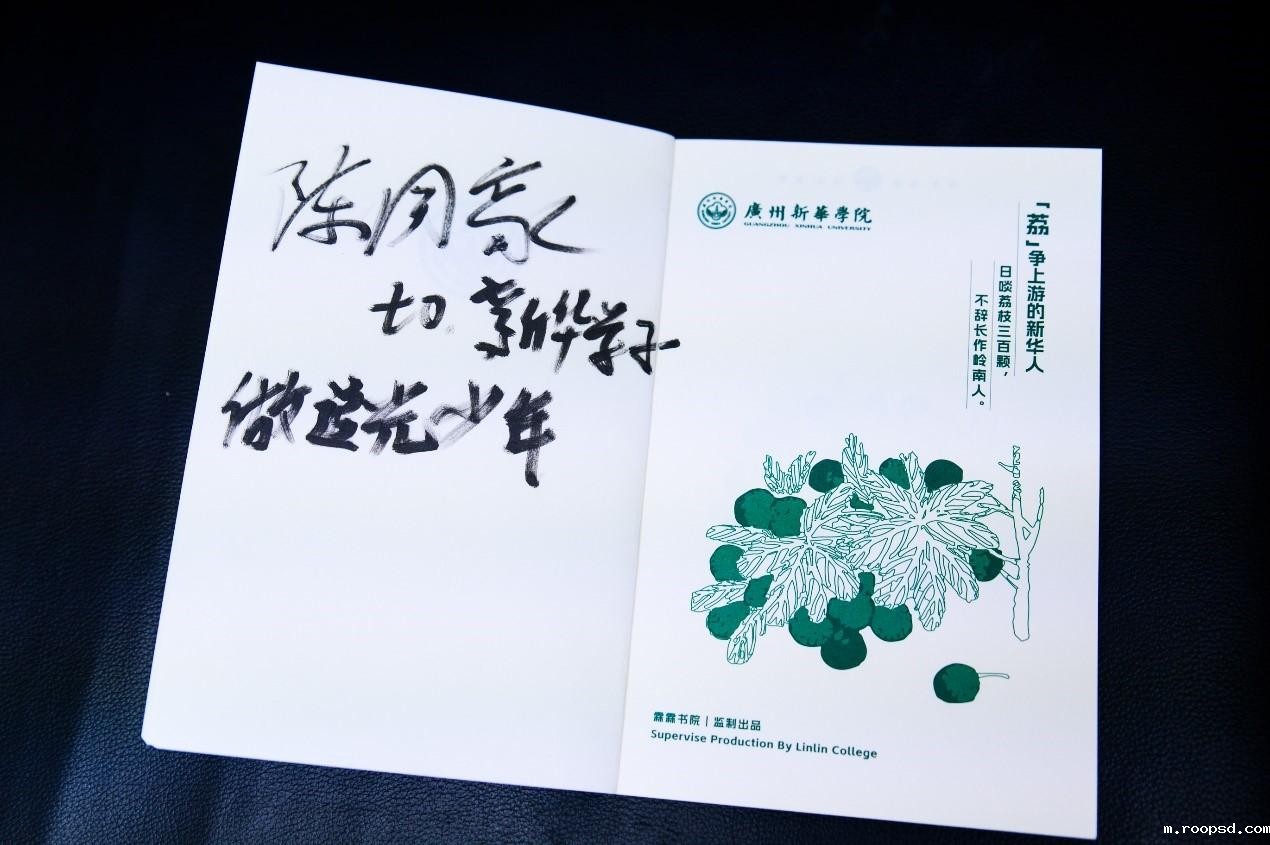 陈
to. 新华学子
做追光少年
廣州新華學院
GUANGZHOU XINHUA UNIVERSITY
「荔」争上游的新华人
日啖荔枝三百颗，
不辞长作岭南人。
霖霖书院｜监制出品
Supervise Production By Linlin College
m.roopsd.com